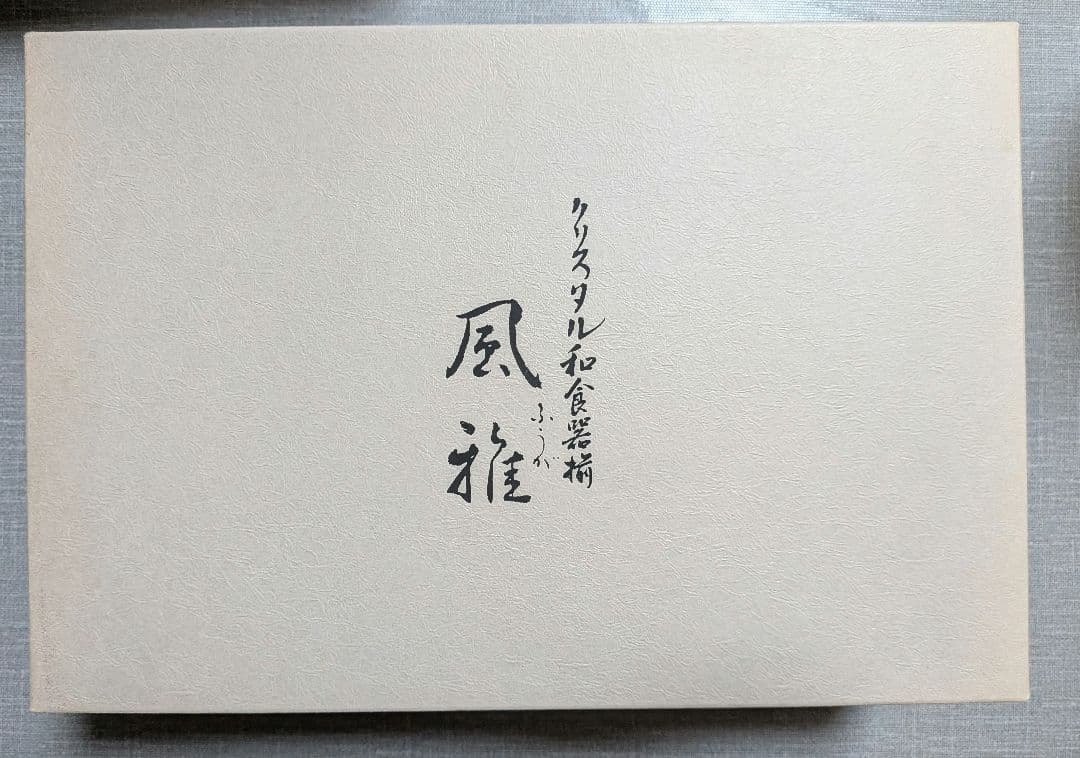 クリスタル和食器揃
風雅
ふうが